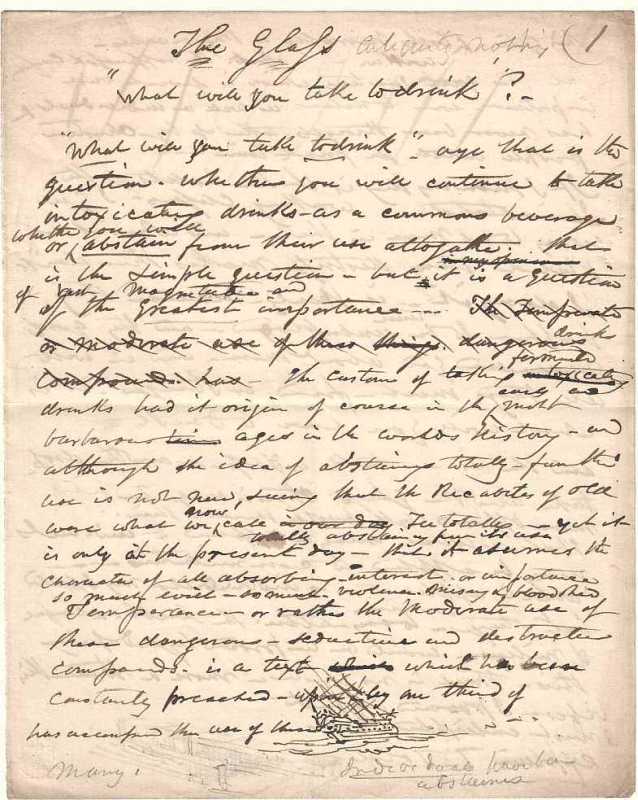 The Glass (1
"What will you take to drink"?-
"What will you take to drink" - aye that is the
question - whether you will continue to take
intoxicating drinks - as a common beverage
whether you will
or abstain from their use altogether. that
is the simple question - but it is a question
of vast magnitude and
of the greatest importance --- The Temperate
or moderate use of these things. dangerous drink
compounds. has - The custom of taking intoxicating
drinks had it origin of course in the early and most
barbarous times ages in the worlds History - and
although the idea of abstaining totally - from the
use is not new, seeing that the Recabites of old
now
were what we call in our day Tee totally - yet it
totally abstaining from its use
is only at the present day - that it assumes the
character of all absorbing interest. or importance
so much evil - so much violence. misery & bloodshed
Temperance - or rather the Moderate use of
these dangerous - seductive and destructive
compounds. is a text which which has been
constantly preached - upon by one third of
has accompanied the use of these
Many.
abstainers